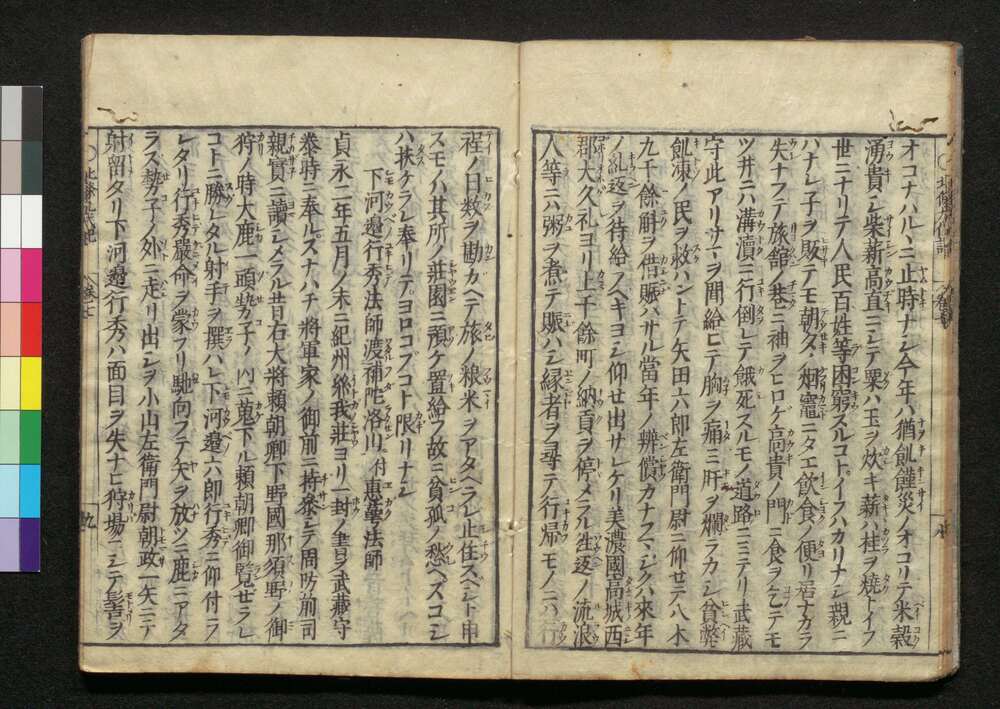 オコナハルヽニ止時ナシ今年ハ猶飢饉災ノオコリテ米穀
湧貴シ柴薪高直ニシテ粟ハ玉ヲ炊キ薪ハ桂ヲ燒トイフ
世ニナリテ人民百姓等困窮スルコトイフハカリナシ親ニ
ハナレ子ヲ販テモ朝夕ノ烟竈ニタエ飲食ノ便リ居ナカラ
失ナフテ旅舘ノ巷ニ袖ヲヒロケ高貴ノ門ニ食ヲ乞テモ
ツ井ニハ溝瀆ニ行倒レテ餓死スルモノ道路ニミテリ武藏
守此アリサマヲ聞給ヒテ胸ヲ痛ミ肝ヲ爛ラカシ貧弊
飢凍ノ民ヲ救ハントテ矢田六郎左衛門尉ニ仰セテ八木
九千餘斛ヲ借賑ハサル當年ノ辨償カナフマシクハ來年
ノ糺返ヲ待給スヘキヨシ仰セ出サレケリ美濃國高城西
郡大久礼ヨリ上千餘町ノ納貢ヲ停メラル往返ノ流浪
人等ニハ粥ヲ煮テ賑ハシ縁者ヲ尋テ行帰モノニハ行
程ノ日数ヲ勘カヘテ旅ノ粮米ヲアタヘラレ止住スヘシト申
スモノハ其所ノ莊園ニ預ケ置給フ故ニ貧孤ノ愁ヘスコシ
ハ扶ケラレ奉リテヨロコフコト限リナシ
下河邉行秀法師渡補陀洛山付惠萼法師
貞永二年五月ノ末ニ紀州糸我莊ヨリ一封ノ書ヲ武藏守
泰時ニ奉ルスナハチ將軍家ノ御前ニ持參シテ周防前司
親實ニ讀シメラル昔右大將頼朝卿下野國那須野ノ御
狩ノ時大鹿一頭勢子ノ内ニ蒐下ル頼朝卿御覧セラレ
コトニ勝レタル射手ヲ撰ハレ下河邉六郎行秀ニ仰付ラ
レタリ行秀嚴命ヲ蒙フリ馳向フテ矢ヲ放ツニ鹿ニアタ
ラス勢子ノ外ニ走リ出シヲ小山左衛門尉朝政一矢ニテ
射留タリ下河邉行秀ハ面目ヲ失ナヒ狩場ニシテ髻ヲ